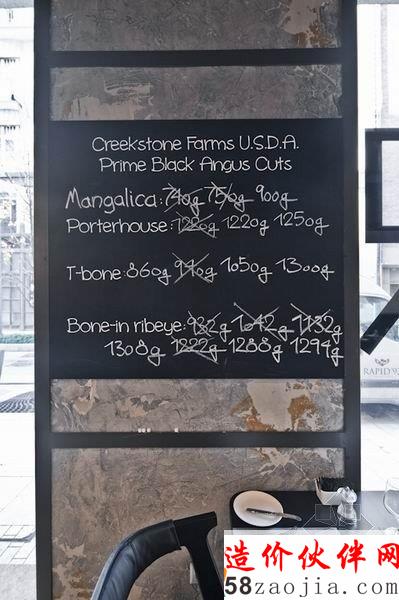 Creekstone Farms U.S.D.A.
Prime Black Angus Cuts
Mangalica: 740g 750g 900g
Porterhouse: 1220g 1220g 1250g
T-bone: 860g 940g 1050g 1300g
Bone-in ribeye: 932g 1042g 1132g
1308g 1222g 1288g 1294g
RAPID
造价伙伴网
58zaojia.com